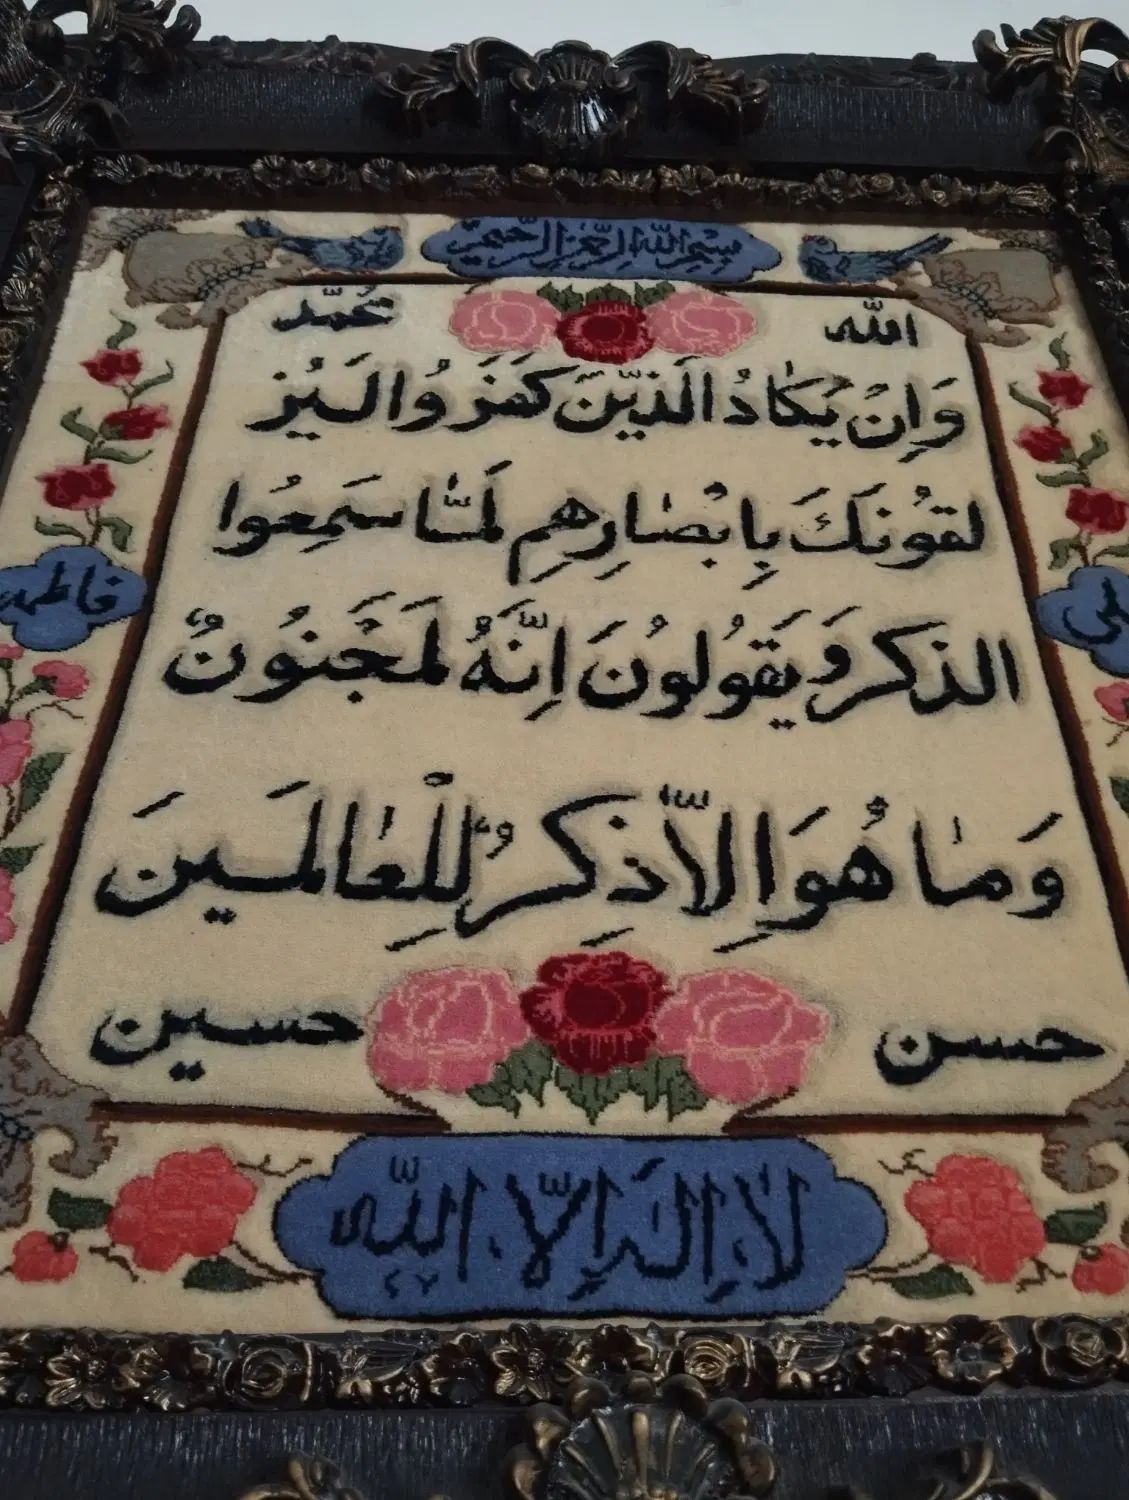 بِسْمِ اللّٰهِ الرَّحْمٰنِ الرَّحِيمِ
اللّٰه
مُحَمَّد
وَاِنْ يَكٰادُ الَّذِيْنَ كَفَرُوا لَيُزْ
لِقُونَكَ بِاَبْصٰارِهِمْ لَمّٰا سَمِعُوا
الذِّكْرَ وَيَقُولُونَ اِنَّهُ لَمَجْنُونٌ
وَمٰا هُوَ اِلّٰا ذِكْرٌ لِلْعٰالَمِينَ
علي
فاطمه
حسن
حسين
لٰا اِلٰهَ اِلَّا اللّٰه